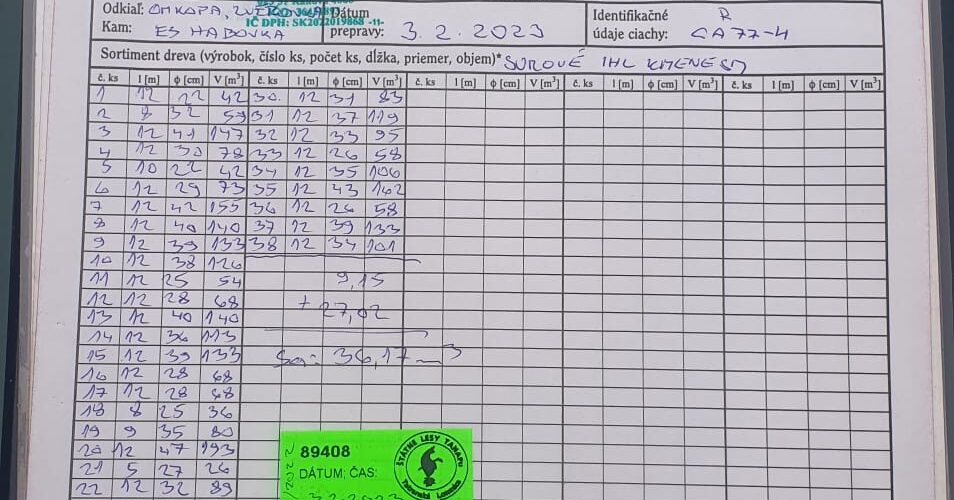 Odkiaľ: OHKOPA,
IČ DPH: SK2022019868 -11-
Kam: ES HABOVKA
Dátum prepravy: 3.2.2023
Identifikačné údaje ciachy: R CA77-4
Sortiment dreva (výrobok, číslo ks, počet ks, dĺžka, priemer, objem)* SUROVÉ IHL KMENE
č. ks l [m] ϕ [cm] V [m³] č. ks l [m] ϕ [cm] V [m³] č. ks l [m] ϕ [cm] V [m³] č. ks l [m] ϕ [cm] V [m³] č. ks l [m] ϕ [cm] V [m³]
1 12 22 42 30. 12 31 83
2 8 32 59 31 12 37 119
3 12 41 147 32 12 33 95
4 12 30 78 33 12 26 58
5 10 22 42 34 12 35 106
6 12 29 73 35 12 43 162
7 12 42 155 36 12 26 58
8 12 40 140 37 12 39 133
9 12 39 133 38 12 34 101
10 12 38 126
11 12 25 54 9,15
12 12 28 68 + 27,02
13 12 40 140
14 12 36 113
15 12 39 133 Sa: 36,17 m³
16 12 28 68
17 12 28 68
18 8 25 36
19 9 35 80
20 12 47 193
21 5 27 26
22 12 32 89
89408
DÁTUM; ČAS:
3.2.2023
ŠTÁTNE LESY TANAPU
Tatranská Lomnica